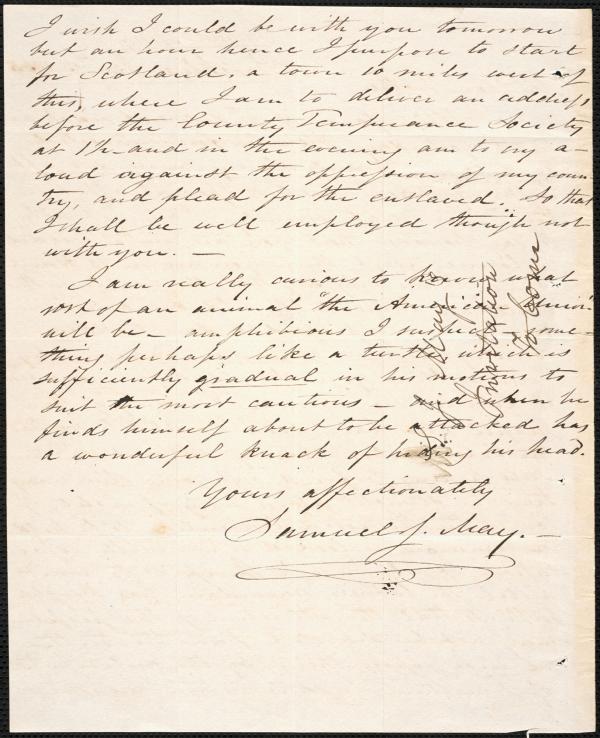 I wish I could be with you tomorrow
but an hour hence I purpose to start
for Scotland, a town 10 miles west of
this, where I am to deliver an address
before the County Temperance Society
at 1½ and in the evening am to cry a-
loud against the oppression of my coun-
try, and plead for the enslaved. So that
I shall be well employed though not
with you. —
I am really curious to know what
sort of an animal "the American Union"
will be — amphibious I suspect — some-
thing perhaps like a turtle which is
sufficiently gradual in his motions to
suit the most cautious — and when he
finds himself about to be attacked has
a wonderful knack of hiding his head.
Yours affectionately
Samuel J. May. —
S. J. May
Invitation
to Come